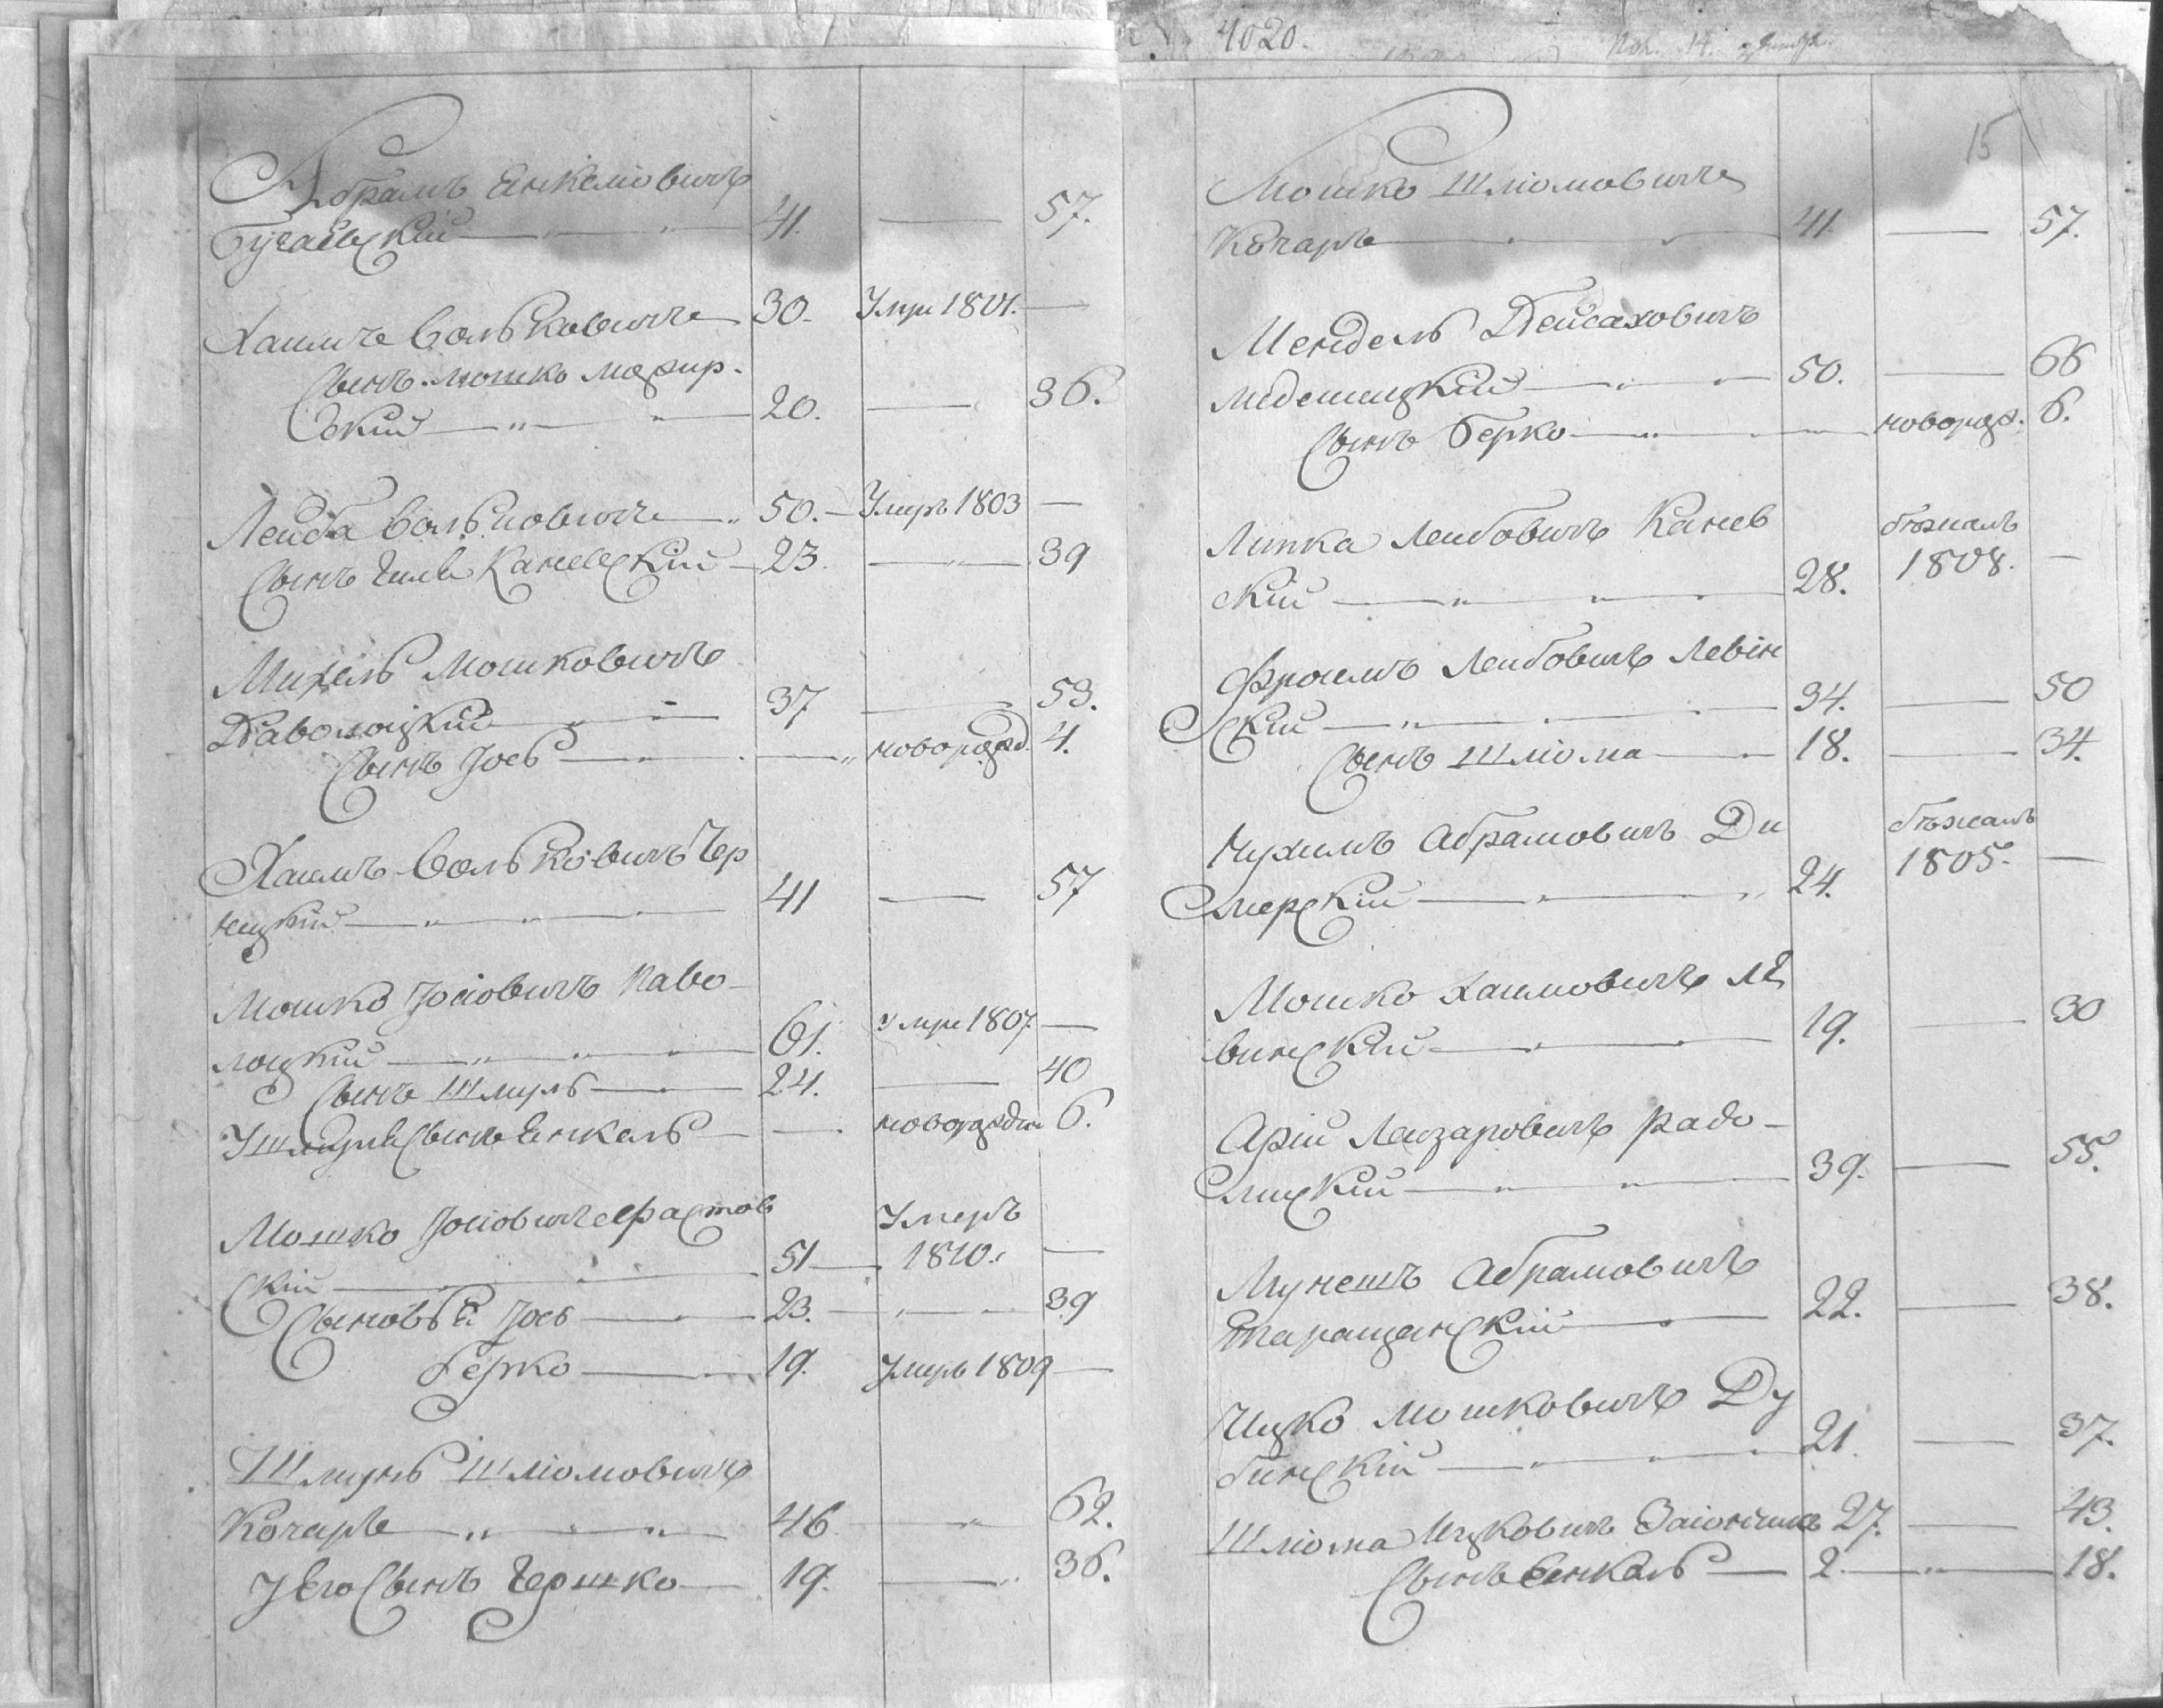 Абрамъ Енкеліовичъ
Бугаевскій 41. 57.
Хаимъ Вольковичъ 30. Умре 1801.
Сынъ Мошко Мозир-
скій 20. 36.
Лейба Вольковичъ 50. Умръ 1803
Сынъ Гилв Каневскій 23. 39
Михель Мошковичъ
Паволоцкій 37 53.
Сынъ Іось новорожд. 4.
Хаимъ Вольковичъ Чер
нецкій 41 57
Мошко Іосіовичъ Паво-
лоцкій 61. Умре 1807.
Сынъ Шмуль 24. 40
У Шмуля Сынъ Енкель новорожден 6.
Мошко Іосіовичъ Фастов
скій 51 Умеръ 1810.
Сыновья Іось 23. 39
Берко 19. Умръ 1809
Шмуль Шліомовичъ
Кочаръ 46 62.
У Его Сынъ Гершко 19. 36.
4020.
15
Мошко Шліомовичъ
Кочаръ 41. 57.
Мендель Пейсаховичъ
50. 66
Сынъ Берко новорож. 6.
Липка Лейбовичъ Канев бѣжалъ
скій 28. 1808.
Фроимъ Лейбовичъ Левін
скій 34. 50
Сынъ Шліома 18. 34.
Нухимъ Абрамовичъ Ди бѣжалъ
мерскій 24. 1805.
Мошко Хаимовичъ Ле
винскій 19. 30
Арій Лейзаровичъ Радо-
мискій 39. 55.
Абрамовичъ
Таращанскій 22. 38.
Ицко Мошковичъ Ду
бинскій 21. 37.
Шліома Ицковичъ 27. 43.
Сынъ Енкель 2. 18.